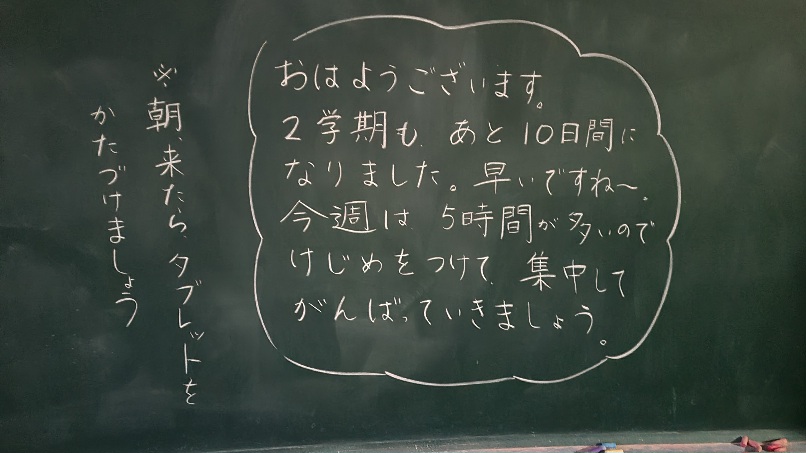 おはようございます。
2学期も、あと10日間に
なりました。早いですね～。
今週は、5時間が多いので
けじめをつけて、集中して
がんばっていきましょう。
※朝、来たら、タブレットを
かたづけましょう